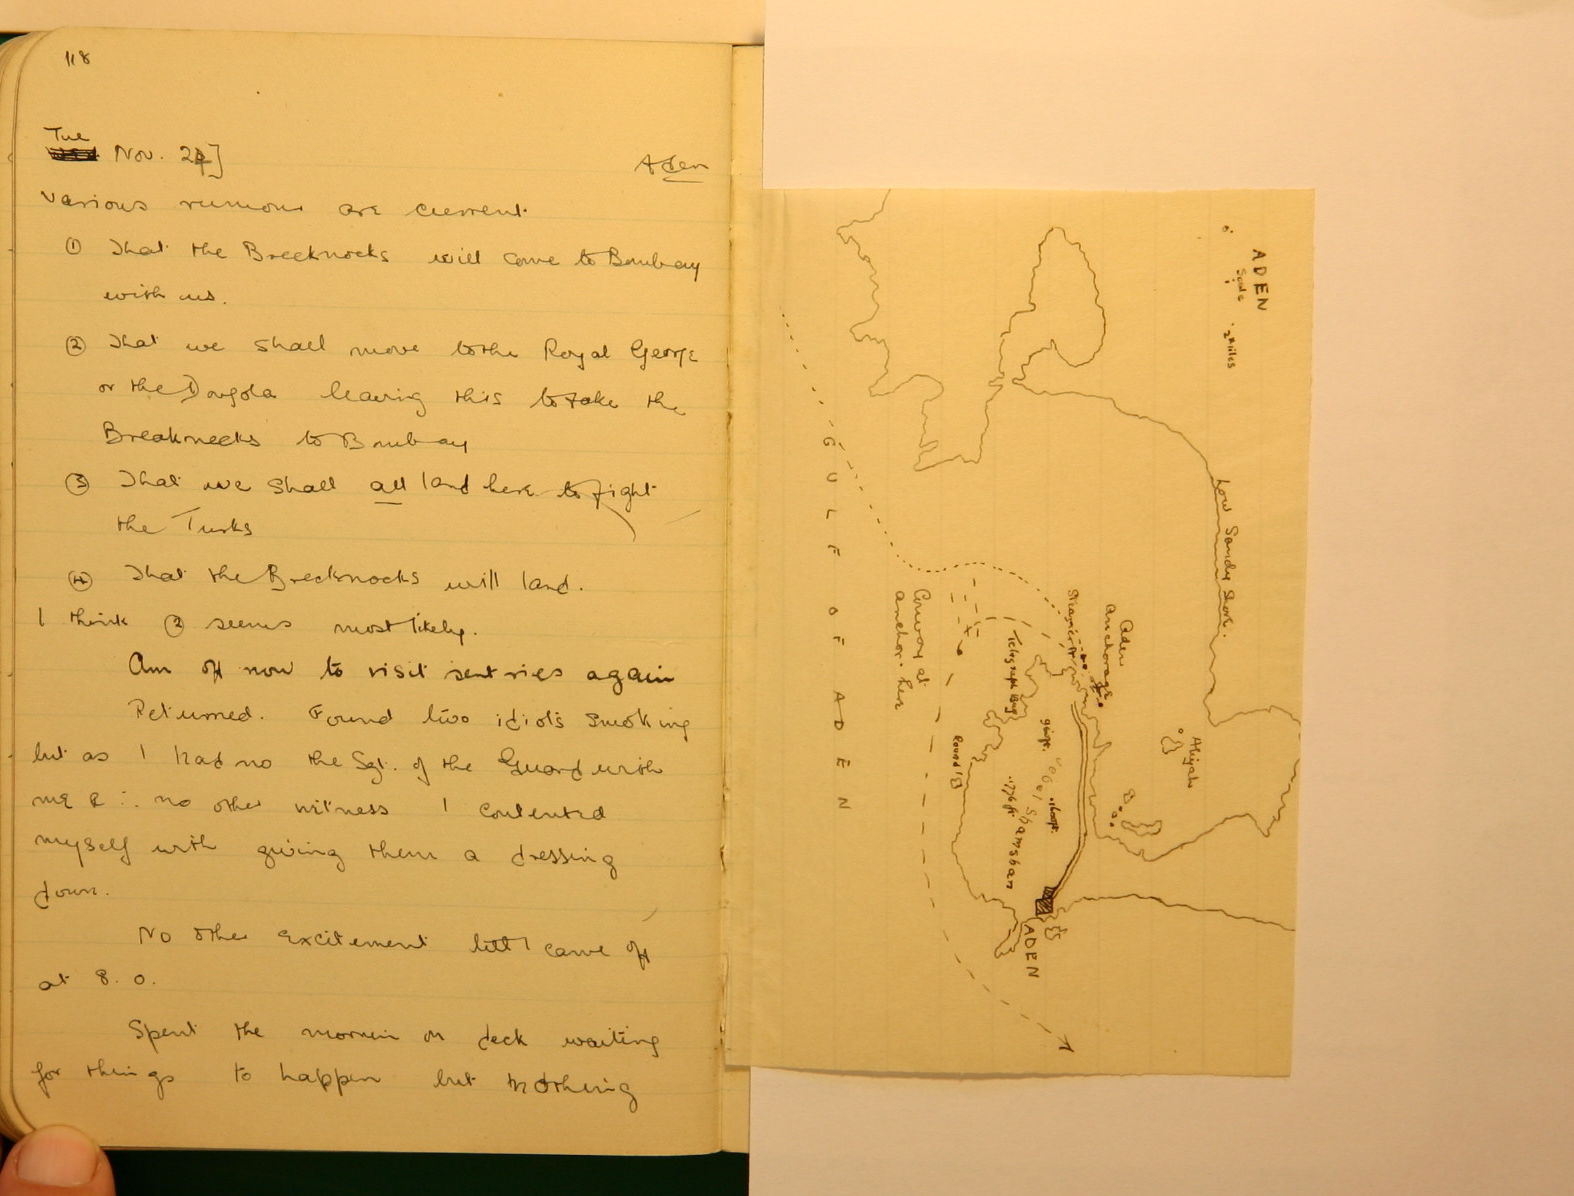 118
Tue Nov. 24]
Aden
Various rumours are current.
① That the Brecknocks will come to Bombay
with us.
② That we shall move to the Royal George
or the Dongola leaving this to take the
Brecknocks to Bombay
③ That we shall all land here to fight
the Turks
④ That the Brecknocks will land.
I think ② seems most likely.
Am off now to visit sentries again
Returned. Found two idiots smoking
but as I had no the Sgt. of the Guard with
me & ∴ no other witness I contented
myself with giving them a dressing
down.
No other excitement till I came off
at 8.0.
Spent the mornin on deck waiting
for things to happen but nothing
ADEN
Scale
0 1 2 Miles
Low Sandy Shore.
Aden
anchorage
Steamer Pt
Aliyah
Telegraph Bay
Round Id
Shamshan
1776 ft.
ADEN
Convoy at
anchor here
GULF OF ADEN